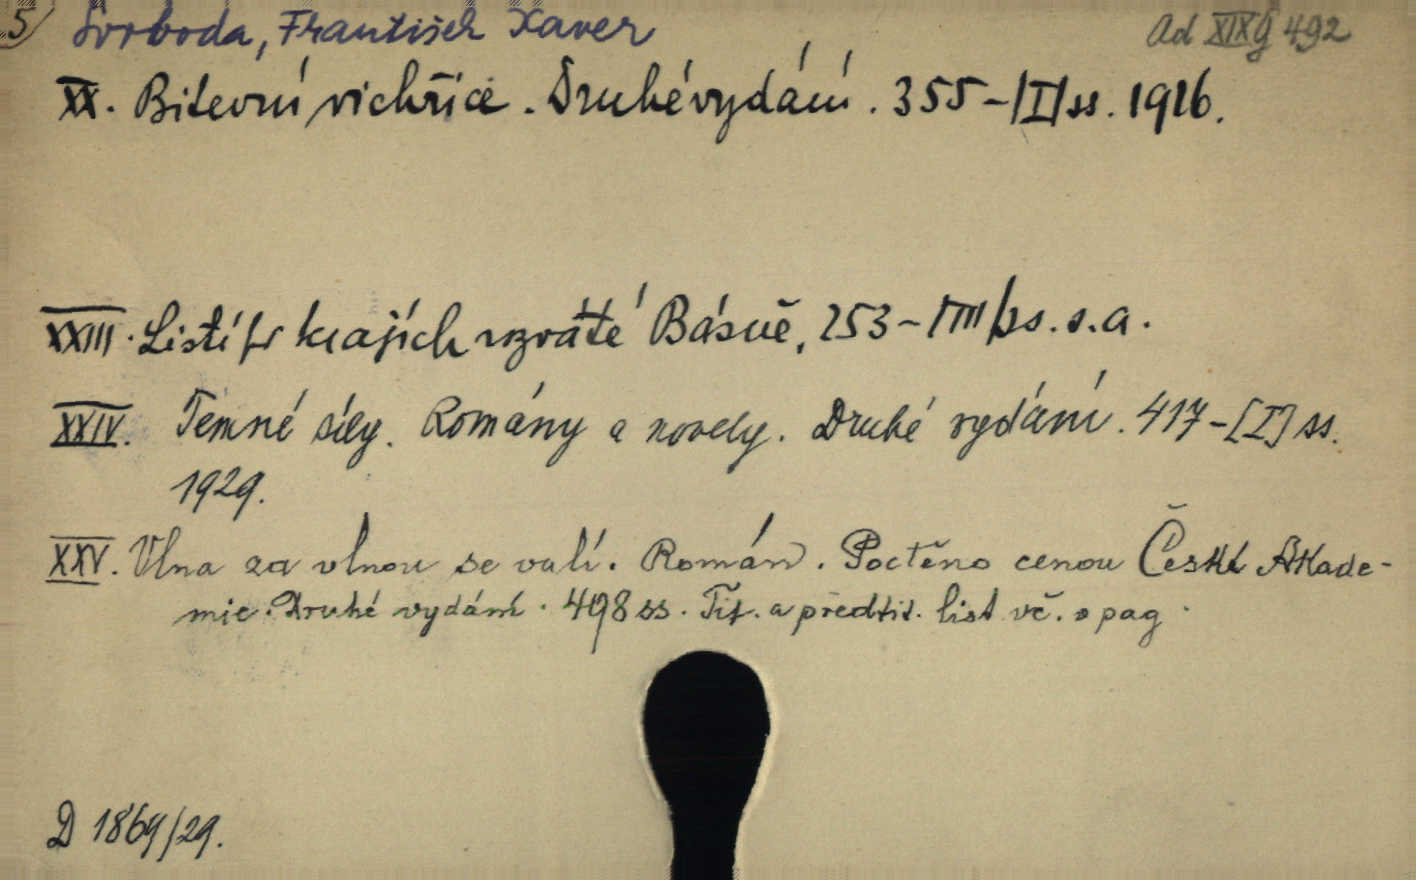 5
Svoboda, František Xaver
Ad XIX g 492
XX. Bitevní vichřice. Druhé vydání. 355-/I/ss. 1916.
XXIII. Listí v krajích rozváté Básně, 253-/III/ss. s. a.
XXIV. Temné síly. Romány a novely. Druhé vydání. 417-[I] ss.
1929.
XXV. Vlna za vlnou se valí. Román. Poctěno cenou České Akade-
mie. Druhé vydání. 498 ss. Tit. a předtit. list vč. o pag.
D 1869/29.